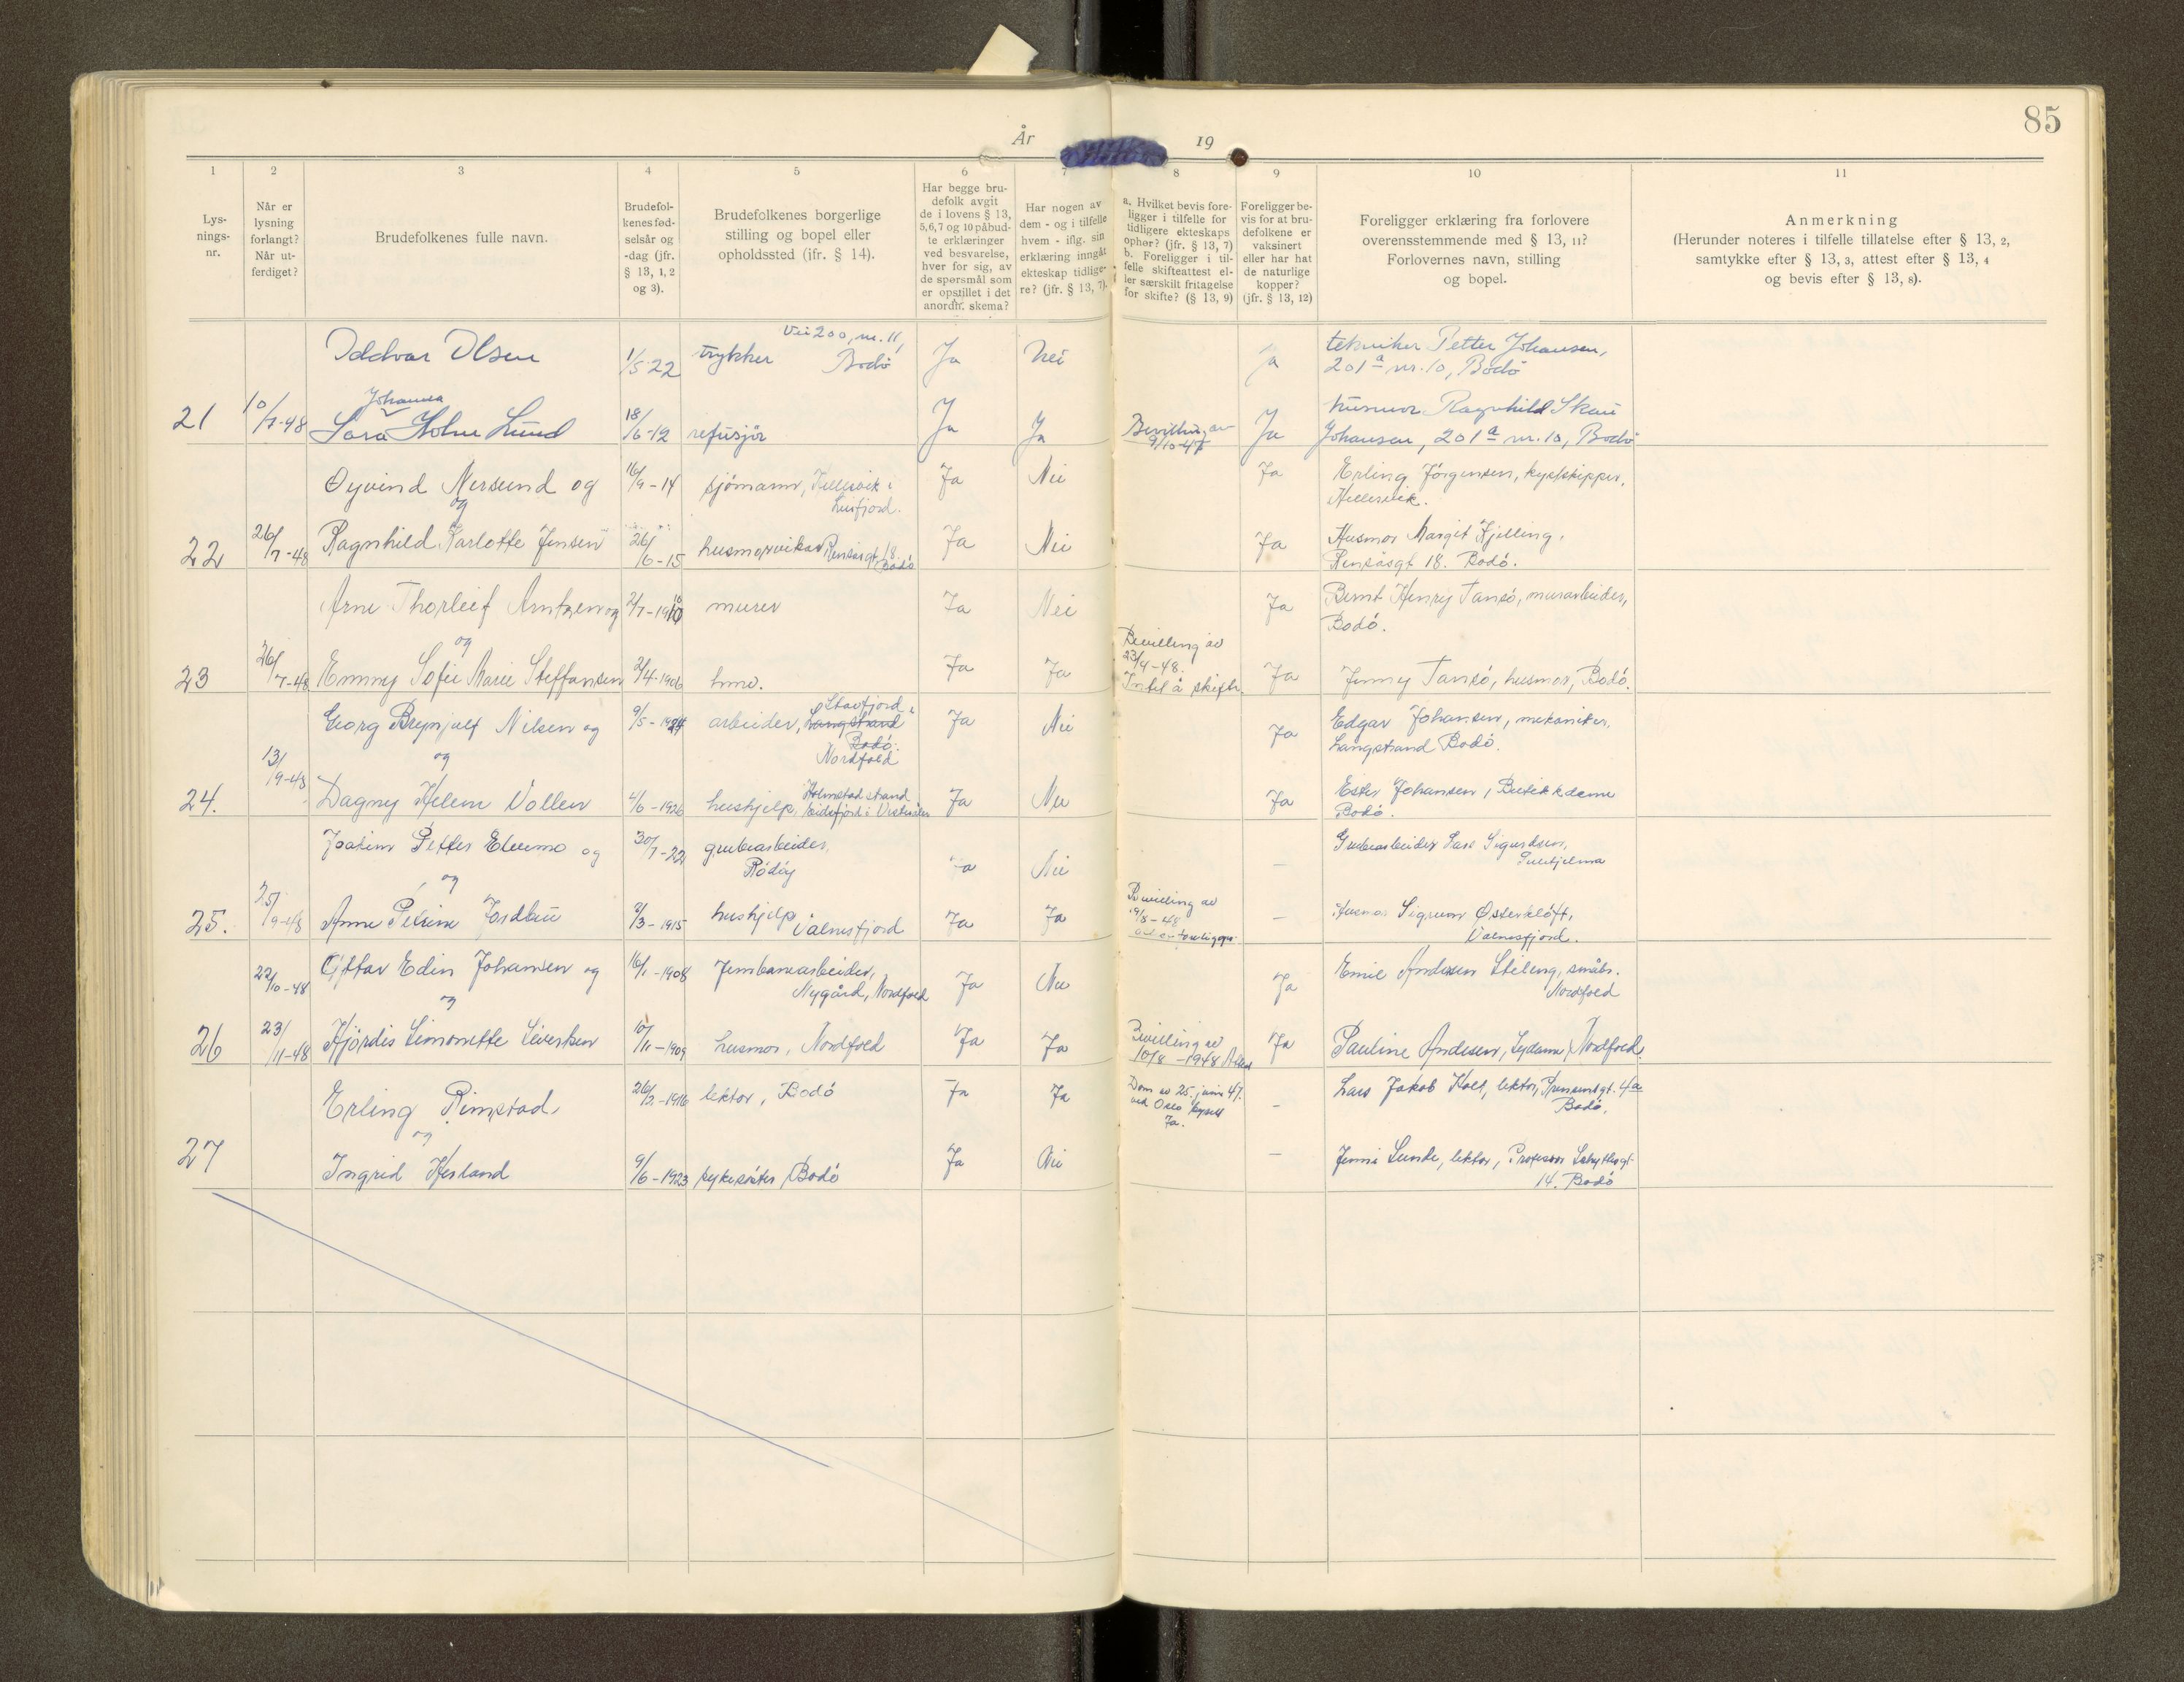 85
År 19
1 2 3 4 5 6 7 8 9 10 11
Lys-
nings-
nr.
Når er
lysning
forlangt?
Når ut-
ferdiget?
Brudefolkenes fulle navn.
Brudefol-
kenes fød-
selsår og
-dag (jfr.
§ 13, 1, 2
og 3).
Brudefolkenes borgerlige
stilling og bopel eller
opholdssted (jfr. § 14).
Har begge bru-
defolk avgit
de i lovens § 13,
5, 6, 7 og 10 påbud-
te erklæringer
ved besvarelse,
hver for sig, av
de spørsmål som
er opstillet i det
anordn. skema?
Har nogen av
dem - og i tilfelle
hvem - iflg. sin
erklæring inngåt
ekteskap tidlige-
re? (jfr. § 13, 7).
a. Hvilket bevis fore-
ligger i tilfelle for
tidligere ekteskaps
ophør? (jfr. § 13, 7)
b. Foreligger i til-
felle skifteattest el-
ler særskilt fritagelse
for skifte? (§ 13, 9)
Foreligger be-
vis for at bru-
defolkene er
vaksinert
eller har hat
de naturlige
kopper?
(jfr. § 13, 12)
Foreligger erklæring fra forlovere
overensstemmende med § 13, 11?
Forlovernes navn, stilling
og bopel.
Anmerkning
(Herunder noteres i tilfelle tillatelse efter § 13, 2,
samtykke efter § 13, 3, attest efter § 13, 4
og bevis efter § 13, 8).
Vei 200, nr. 11,
Oddvar Olsen 1/5 22 trykker Bodö Ja Nei ja tekniker Petter Johansen,
201a nr. 10, Bodö
Johanna
21 10/7-48 Sara Holm Lund 18/6-12 Ja Ja Bevilling av Ja husmor Ragnhild Skau
9/10-47 Johansen, 201a nr. 10, Bodö
Øyvind Nersund og 16/9-14 sjömann, i Ja Nei Ja Erling Jörgensen, kystskipper,
og
22 26/7-48 Ragnhild Karlotte Jensen 26/6-15 husmorvikar Rensåsgt. 18 Bodö Ja Nei Ja Husmor Margit Hjelling,
Rensåsgt 18. Bodö.
Arne Thorleif Arntzen og 2/7-1910 murer Ja Nei Ja Bernt Henry Tansö, murarbeider,
Bodö.
og
Bevilling av
23/4-48.
23 26/7-48 Emmy Sofie Marie Steffansen 2/4-1906 hmv. Ja Ja Intet å skifte. Ja Jenny Tansö, husmor, Bodö.
Georg Brynjulf Nilsen og 9/5-1924 arbeider, Stavfjord i Langstrand Bodö. Nordfold Ja Nei Ja Edgar Johansen, mekaniker.
Langstrand Bodö.
og
24. 13/9-48 Dagny Helene Vollen 4/6-1926 hushjelp, Holmstadstrand Eidsfjord i Vesterålen Ja Nei Ja Ester Johansen, Butikkdame
Bodö.
Joakim Petter Elvemo og 30/7-22 grubearbeider, Rödöy Ja Nei - Grubearbeider Lars Sigurdsen,
Sulitjelma
og
25. 25/9-48 Anne Petrine Jordbru 2/3-1915 hushjelp Valnesfjord Ja Ja Bevilling av - Husmor Sigrunn Østerklöft,
Valnesfjord.
22/10-48 Ottar Edin Johansen og 16/1-1908 Jernbanearbeider, Nygård, Nordfold Ja Nei Ja Emil Andersen Stileng, småbr.
Nordfold
og
26 23/11-48 Hjördis Simonette Sivertsen 10/11-1909 husmor, Nordfold Ja Ja Bevilling av
10/8-1948 Ja Pauline Andersen, Sydame, Nordfold.
Erling Rimstad, 26/2-1916 lektor, Bodö Ja Ja Dom av 25. juni 47.
ved Oslo byrett
Ja. - Lars Jakob Holt, lektor, Prinsensgt. 4a
Bodö.
og
27 Ingrid Hesland 9/6-1923 sykesöster, Bodö Ja Nei - Jenni Sunde, lektor, Professor Schyttesgt.
14. Bodö